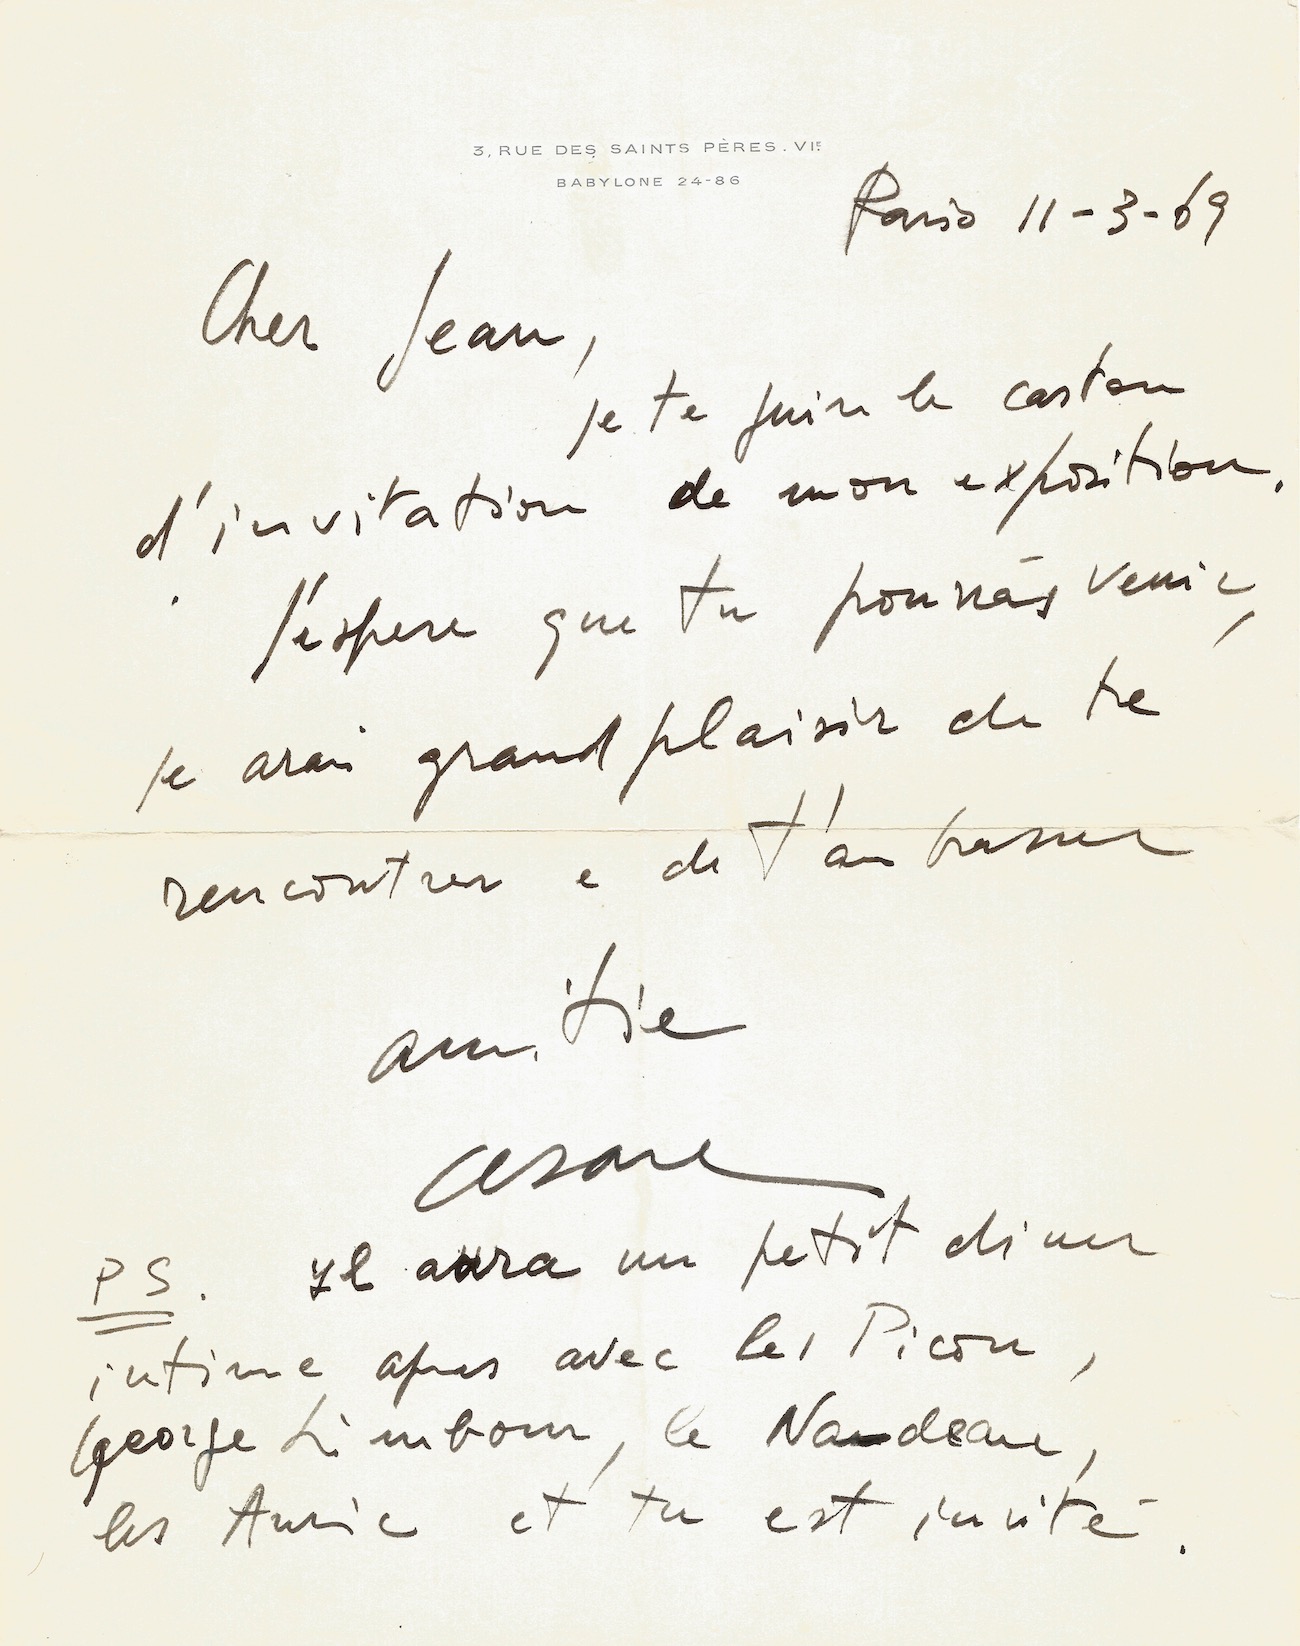 3, RUE DES SAINTS PÈRES. VIE
BABYLONE 24-86
Paris 11-3-69
Cher Jean,
je te juin le carton
d'invitation de mon exposition.
J'éspere que tu pourras venir,
je arai grand plaisir de te
rencontrer e de t'ambrasser
amitie
Cesare
PS. Yl aura un petit diner
intime apres avec les Picon,
George Limbour, le Nandeau,
les Auric et tu est invité.